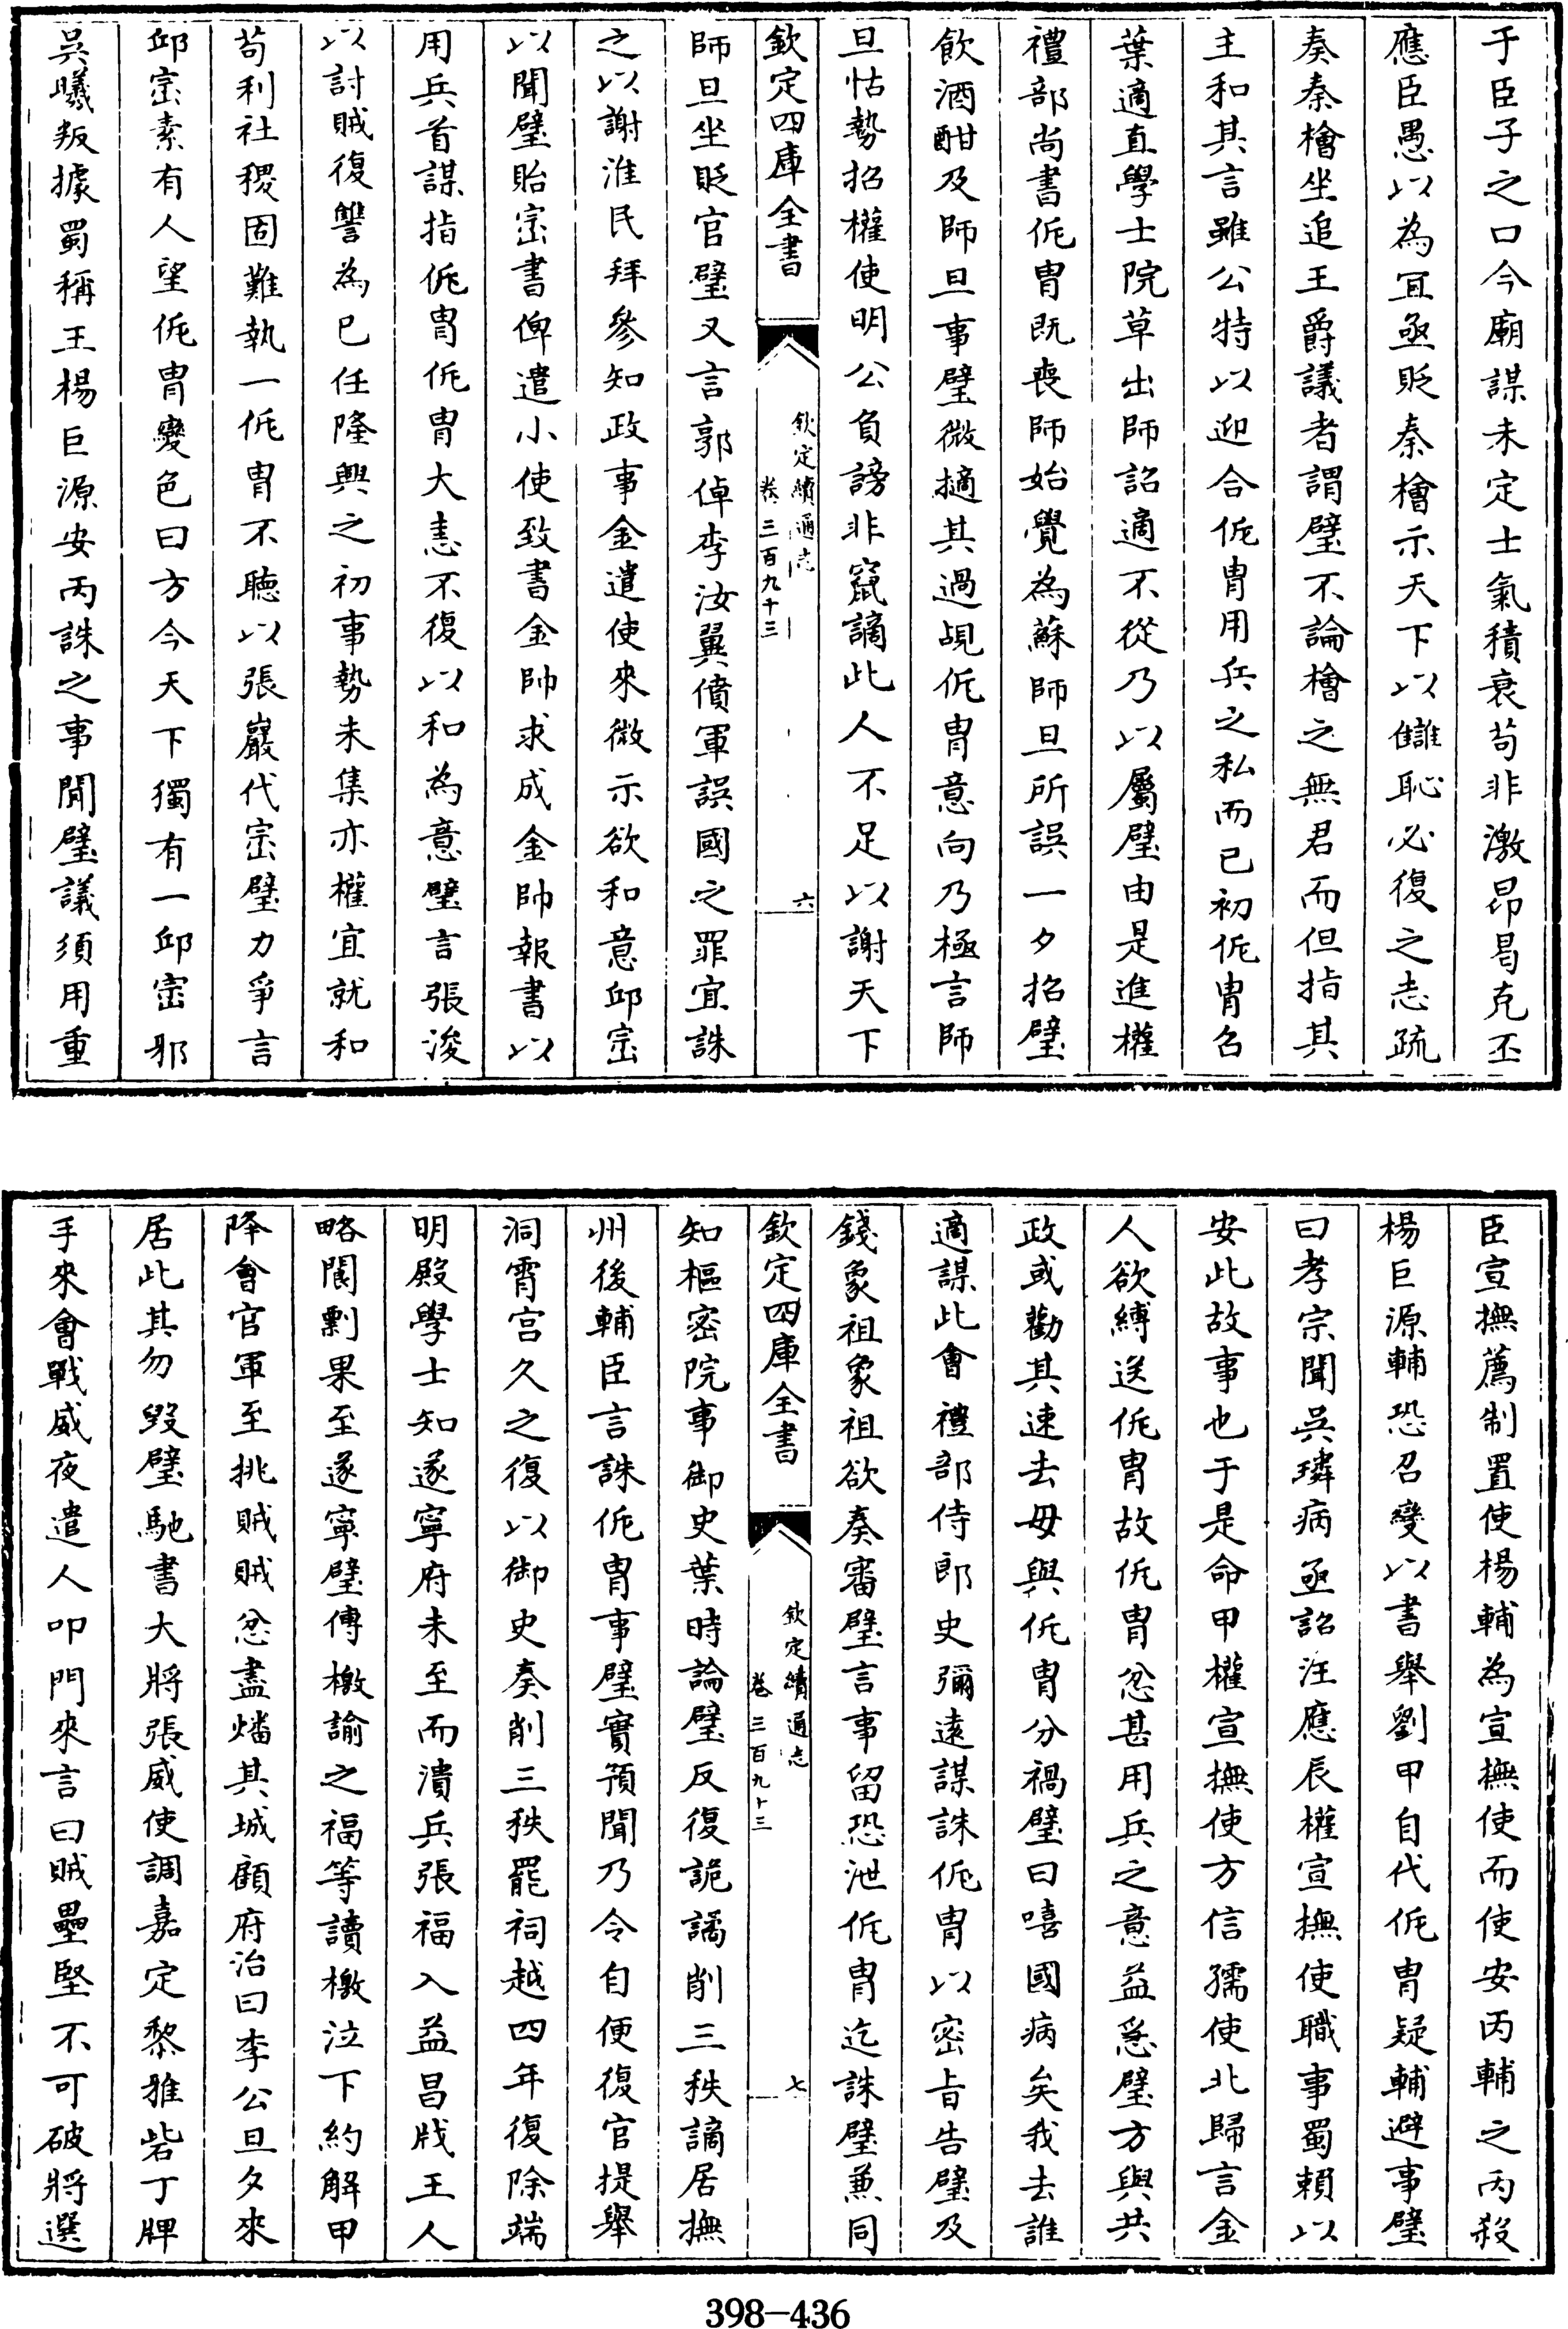 于臣子之口今廟謀未定士氣積衰苟非激昂曷克丕
應臣愚以為宜亟貶秦檜示天下以讎恥必復之志疏
奏秦檜坐追王爵議者謂璧不論檜之無君而但指其
主和其言雖公特以迎合侂胄用兵之私而已初侂胄召
葉適直學士院草出師詔適不從乃以屬璧由是進權
禮部尚書侂胄既喪師始覺為蘇師旦所誤一夕招璧
飲酒酣及師旦事璧微擿其過覘侂胄意向乃極言師
旦怙勢招權使明公負謗非竄謫此人不足以謝天下
欽定四庫全書
欽定續通志
卷三百九十三
六
師旦坐貶官璧又言郭倬李汝翼僨軍誤國之罪宜誅
之以謝淮民拜參知政事金遣使來微示欲和意邱崈
以聞璧貽崈書俾遣小使致書金帥求成金帥報書以
用兵首謀指侂胄侂胄大恚不復以和為意璧言張浚
以討賊復讐為已任隆興之初事勢未集亦權宜就和
苟利社稷固難執一侂胄不聽以張巖代崈璧力爭言
邱崈素有人望侂胄變色曰方今天下獨有一邱崈邪
吳曦叛據蜀稱王楊巨源安丙誅之事聞璧議須用重
臣宣撫薦制置使楊輔為宣撫使而使安丙輔之丙殺
楊巨源輔恐召變以書舉劉甲自代侂胄疑輔避事璧
曰孝宗聞吳璘病亟詔汪應辰權宣撫使職事蜀賴以
安此故事也于是命甲權宣撫使方信孺使北歸言金
人欲縛送侂胄故侂胄忿甚用兵之意益急璧方與共
政或勸其速去毋與侂胄分禍璧曰嘻國病矣我去誰
適謀此會禮部侍郎史彌遠謀誅侂胄以密旨告璧及
錢象祖象祖欲奏審璧言事留恐泄侂胄迄誅璧兼同
欽定四庫全書
欽定續通志
卷三百九十三
七
知樞密院事御史葉時論璧反復詭譎削三秩謫居撫
州後輔臣言誅侂胄事璧實預聞乃令自便復官提舉
洞霄宮久之復以御史奏削三秩罷祠越四年復除端
明殿學士知遂寧府未至而潰兵張福入益昌戕王人
略閬剽果至遂寧璧傳檄諭之福等讀檄泣下約解甲
降會官軍至挑賊賊忿盡燔其城顧府治曰李公旦夕來
居此其勿毀璧馳書大將張威使調嘉定黎雅砦丁牌
手來會戰威夜遣人叩門來言曰賊壘堅不可破將選
398-436